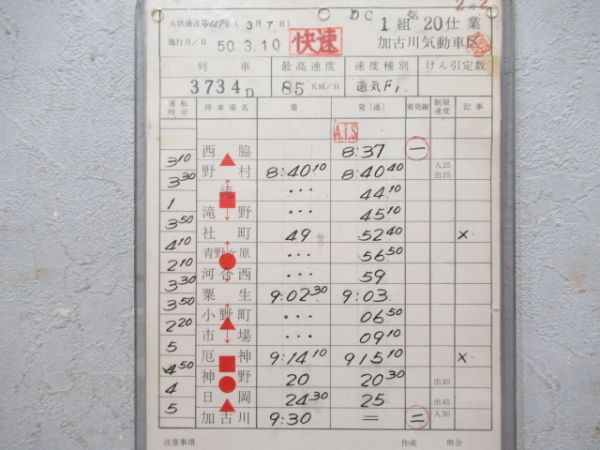 大鉄達 (3月7日) DC 気 1組 20仕業
施行月/日 50.3.10 快速 加古川気動車区
列車 最高速度 速度種別 けん引定数
3734D 85 KM/H 通気F1.
運転時分 停車場名 着 発(通) 着発線 制限速度 記事
A.T.S
西脇 8:37 一
3 10
野村 8:40 10 8:40 40 入25 出25
3 30
滝 ... 44 10
1
滝野 ... 45 10
3 50
社町 49 52 40 ×
4 10
青野ヶ原 ... 56 50
2 10
河合西 ... 59
3 30
粟生 9:02 30 9:03.
3 50
小野町 ... 06 50
2 20
市場 ... 09 10
5
厄神 9:14 10 9 15 10 ×
4 50
神野 20 20 30 出45
4
日岡 24 30 25 出45
5
加古川 9:30 = 二 入30
注意事項 作成 照合